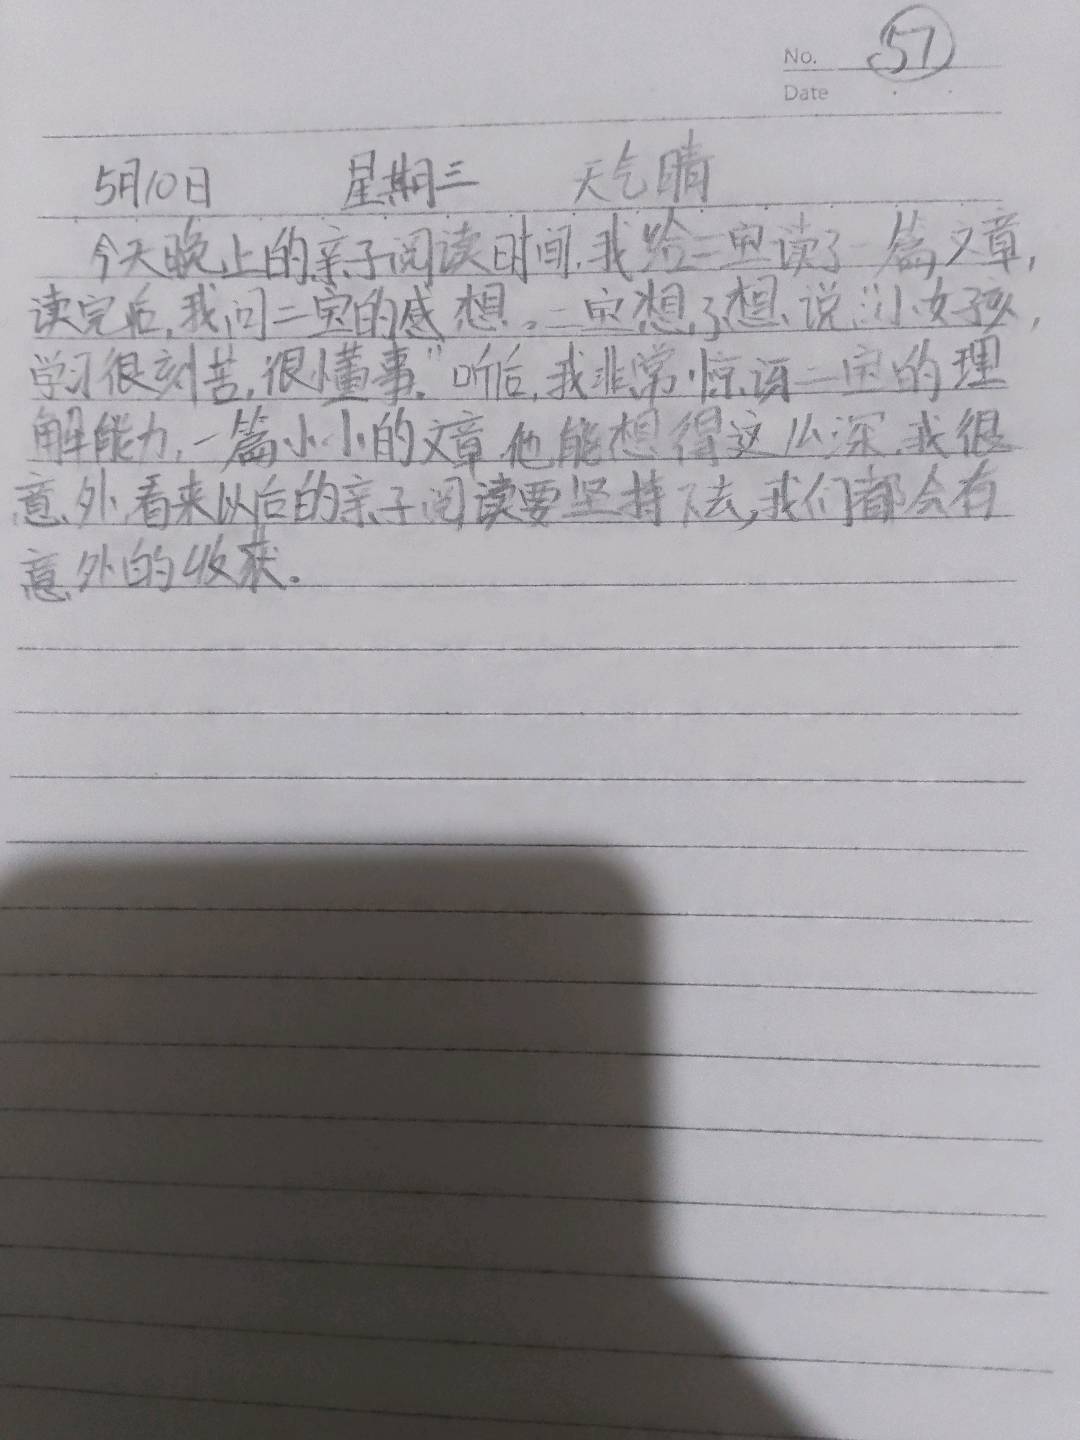 No. 57
Date
5月10日 星期三 天气晴
今天晚上的亲子阅读时间,我给二宝读了一篇文章,
读完后,我问二宝的感想。二宝想了想,说:“小女孩,
学习很刻苦,很懂事。”听后,我非常惊讶二宝的理
解能力,一篇小小的文章,他能想得这么深,我很
意外,看来以后的亲子阅读要坚持下去,我们都会有
意外的收获.